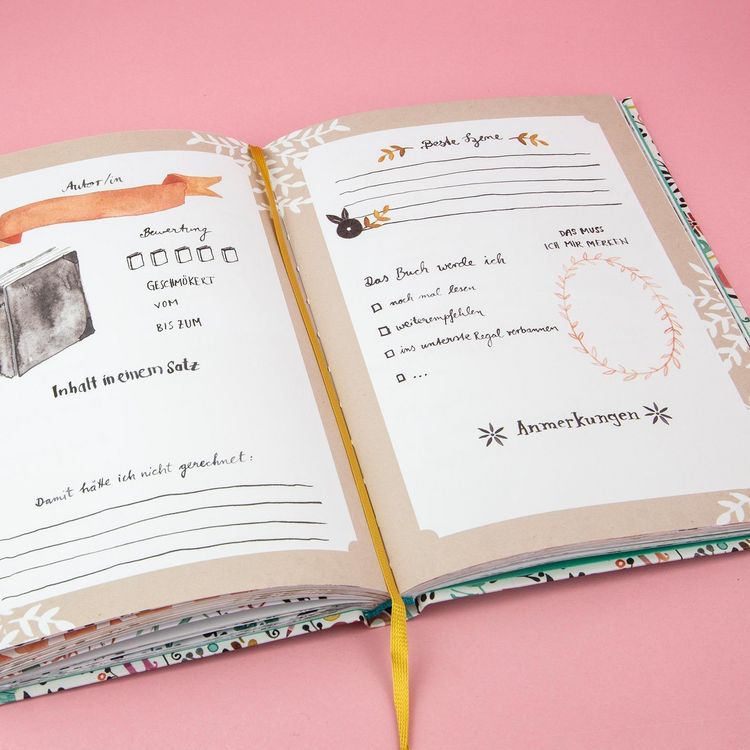 Autor/in
Bewertung
GESCHMÖKERT
VOM
BIS ZUM
Inhalt in einem Satz
Damit hätte ich nicht gerechnet:
Beste Szene
DAS MUSS
ICH MIR MERKEN
Das Buch werde ich
noch mal lesen
weiterempfehlen
ins unterste Regal verbannen
...
Anmerkungen